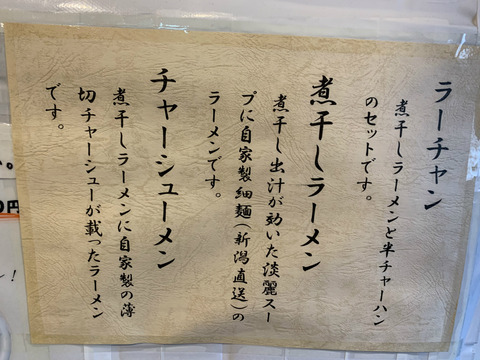 ラーチャン
煮干しラーメンと半チャーハン
のセットです。
煮干しラーメン
煮干し出汁が効いた淡麗スー
プに自家製細麺(新潟直送)の
ラーメンです。
チャーシューメン
煮干しラーメンに自家製の薄
切チャーシューが載ったラーメン
です。